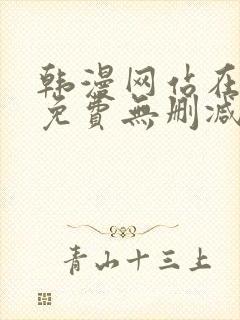 韩漫网站在
免費無刪减
青山十三上